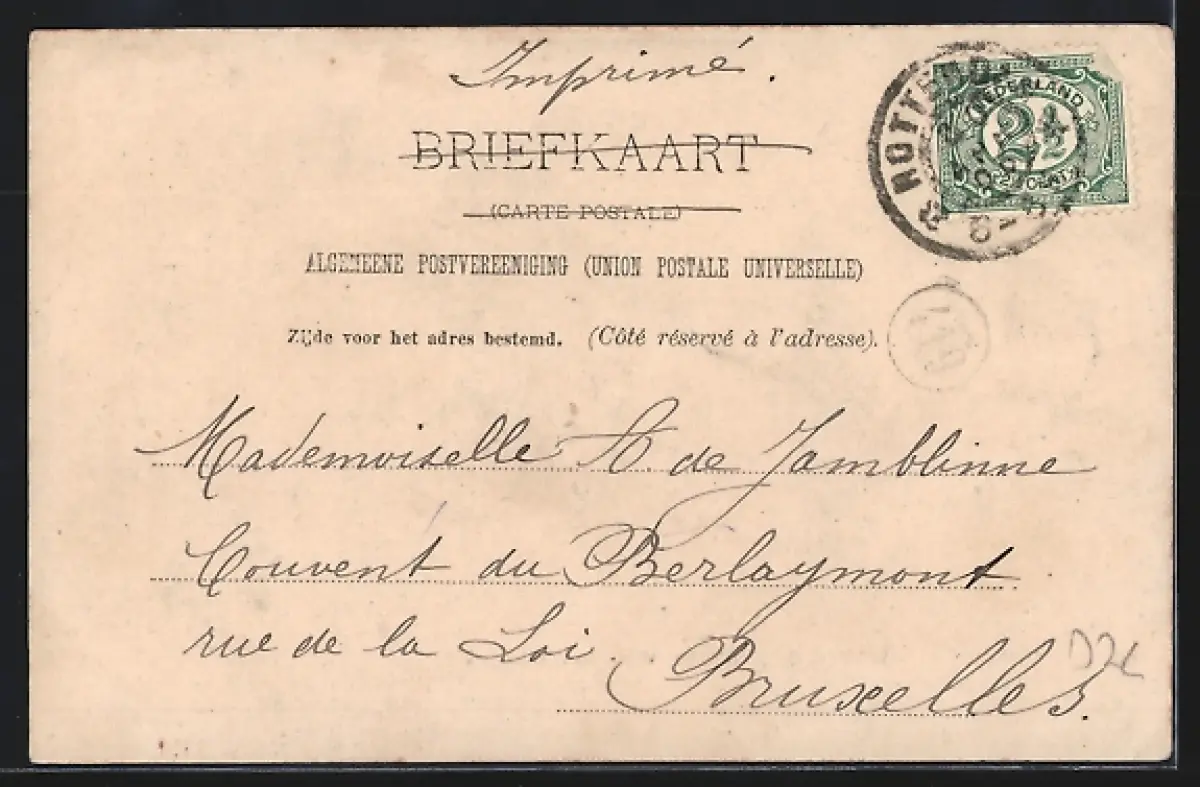 Imprimé.
BRIEFKAART
(CARTE POSTALE)
ALGEMEENE POSTVEREENIGING (UNION POSTALE UNIVERSELLE)
Zijde voor het adres bestemd. (Côté réservé à l'adresse).
NEDERLAND
2½
CENT
Mademoiselle A. de Jamblinne
Couvent du Berlaymont
rue de la Loi.
Bruxelles.